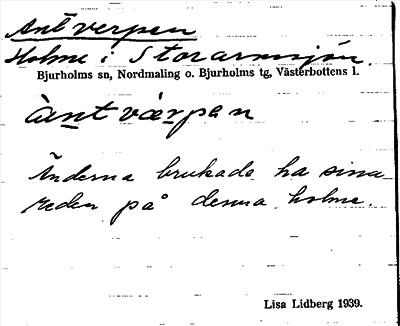 Antverpen
Holme i Storarmsjön.
Bjurholms sn, Nordmaling o. Bjurholms tg, Västerbottens l.
àntvárpen
Änderna brukade ha sina
reden på denna holme.
Lisa Lidberg 1939.